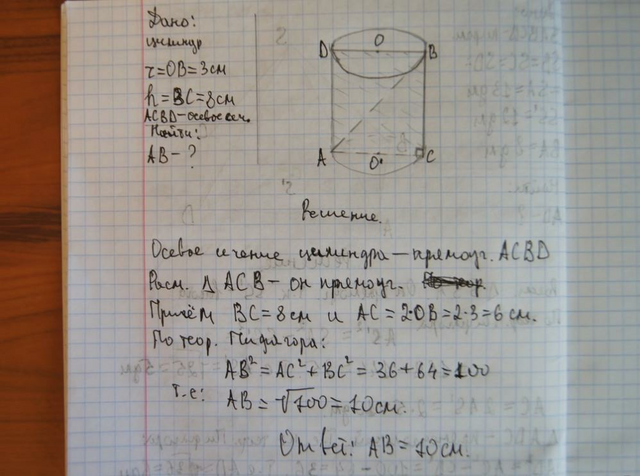 Дано:
цилиндр
r=OB=3см
h=BC=8см
ACBD-осевое сеч.
Найти:
AB-?
D O B
A O' C
Решение.
Осевое сечение цилиндра — прямоуг. ACBD
Расм. Δ ACB - он прямоуг.
Причём BC=8см и AC=2·OB=2·3=6 см.
По теор. Пифагора:
AB²=AC²+BC²=36+64=100
т.е:
AB=√100=10см.
Ответ: AB=10см.